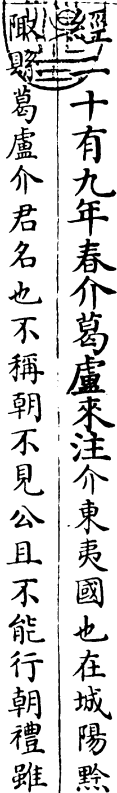 經二十有九年春介葛盧來注介東夷國也在城陽黔
陬縣葛盧介君名也不稱朝不見公且不能行朝禮雖